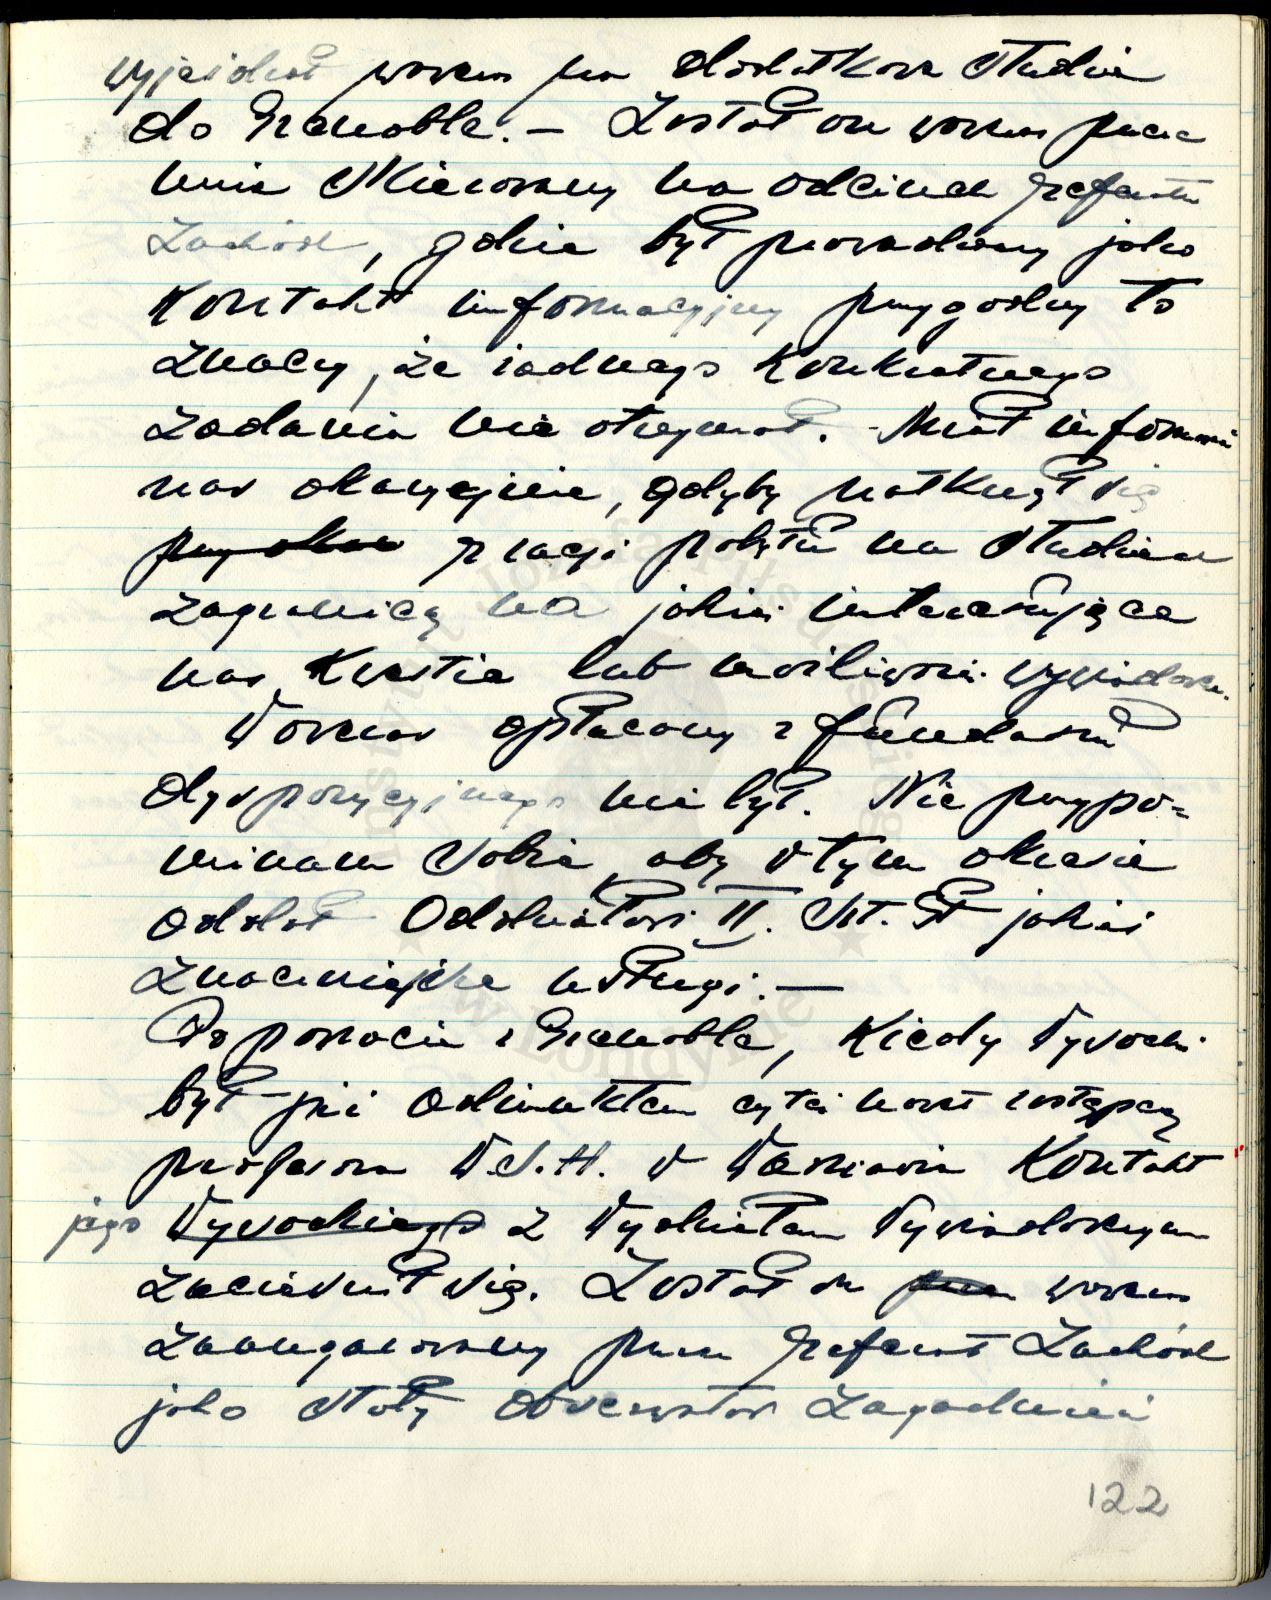 wyjeżdżał wówczas na dodatkowe studia
do Grenoble. — Został on wówczas przeze
mnie skierowany na odcinek referatu
Zachód, gdzie był prowadzony jako
kontakt informacyjny przygodny to
znaczy, że żadnego konkretnego
zadania nie otrzymał. - Miał informować
nas okazyjnie, gdyby natknął się
przy okaz z racji pobytu na studiach
zagranicą na jakieś interesujące
nas kwestie lub możliwości wywiadowcze.
Wówczas opłacany z funduszu
dyspozycyjnego nie był. Nie przypo=
minam sobie, aby w tym okresie
oddał Oddziałowi II. Szt. Gł jakieś
znaczniejsze usługi. —
Po powrocie z Grenoble, kiedy Wysocki
był już adiunktem czyteż nawet zastępcą
profesora W.S.H. w Warszawie kontakt
jego Wysockiego z Wydziałem Wywiadowczym
zacieśnił się. Został on wówczas
zaangażowany przez referat Zachód
jako stały obserwator zagadnień
122
Instytut Józefa Piłsudskiego
w Londynie